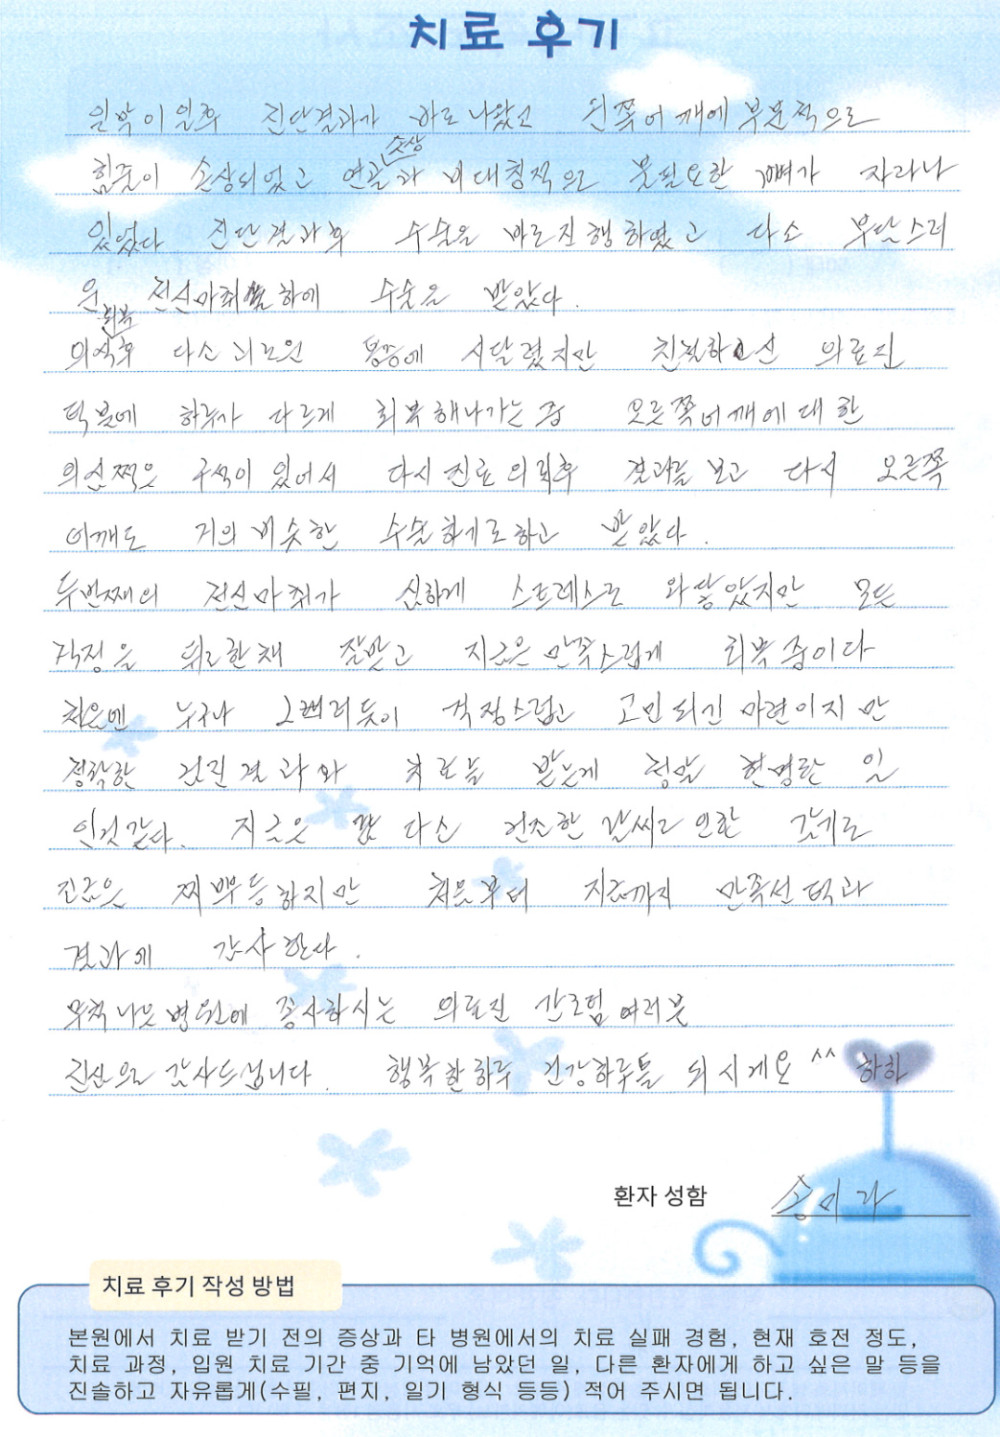 치료 후기
일박이일후 진단결과가 바로 나왔고 왼쪽어깨에 부분적으로
힘줄이 손상되었고 연골손상과 비대칭적으로 불필요한 뼈가 자라나
있었다 진단결과후 수술을 바로진행하였고 다소 부담스러
운 전신마취하에 수술을 받았다.
의식회복후 다소 괴로운 통증에 시달렸지만 친절하신 의료진
덕분에 하루가 다르게 회복해나가는 중 오른쪽어깨에 대한
의심쩍은 구석이 있어서 다시 진료의뢰후 결과를 보고 다시 오른쪽
어깨도 거의 비슷한 수술하기로하고 받았다.
두번째의 전신마취가 심하게 스트레스로 와닿았지만 모든
걱정을 뒤로한채 잘받고 지금은 만족스럽게 회복 중이다
처음엔 누구나 그래듯이 걱정스럽고 고민되긴 마련이지만
정확한 진단결과와 치료를 받는게 정말 현명한 일
인것같다. 지금은 다소 건조한 날씨로 인한 감기로
지금은 찌뿌둥하지만 처음부터 지금까지 만족선택과
결과에 감사한다.
무척나은병원에 종사하시는 의료진 간호팀 여러분
진심으로 감사드립니다. 행복한하루 건강하루들 되시게요 ^^ 하하
환자 성함 송미라
치료 후기 작성 방법
본원에서 치료 받기 전의 증상과 타 병원에서의 치료 실패 경험, 현재 호전 정도,
치료 과정, 입원 치료 기간 중 기억에 남았던 일, 다른 환자에게 하고 싶은 말 등을
진솔하고 자유롭게(수필, 편지, 일기 형식 등등) 적어 주시면 됩니다.